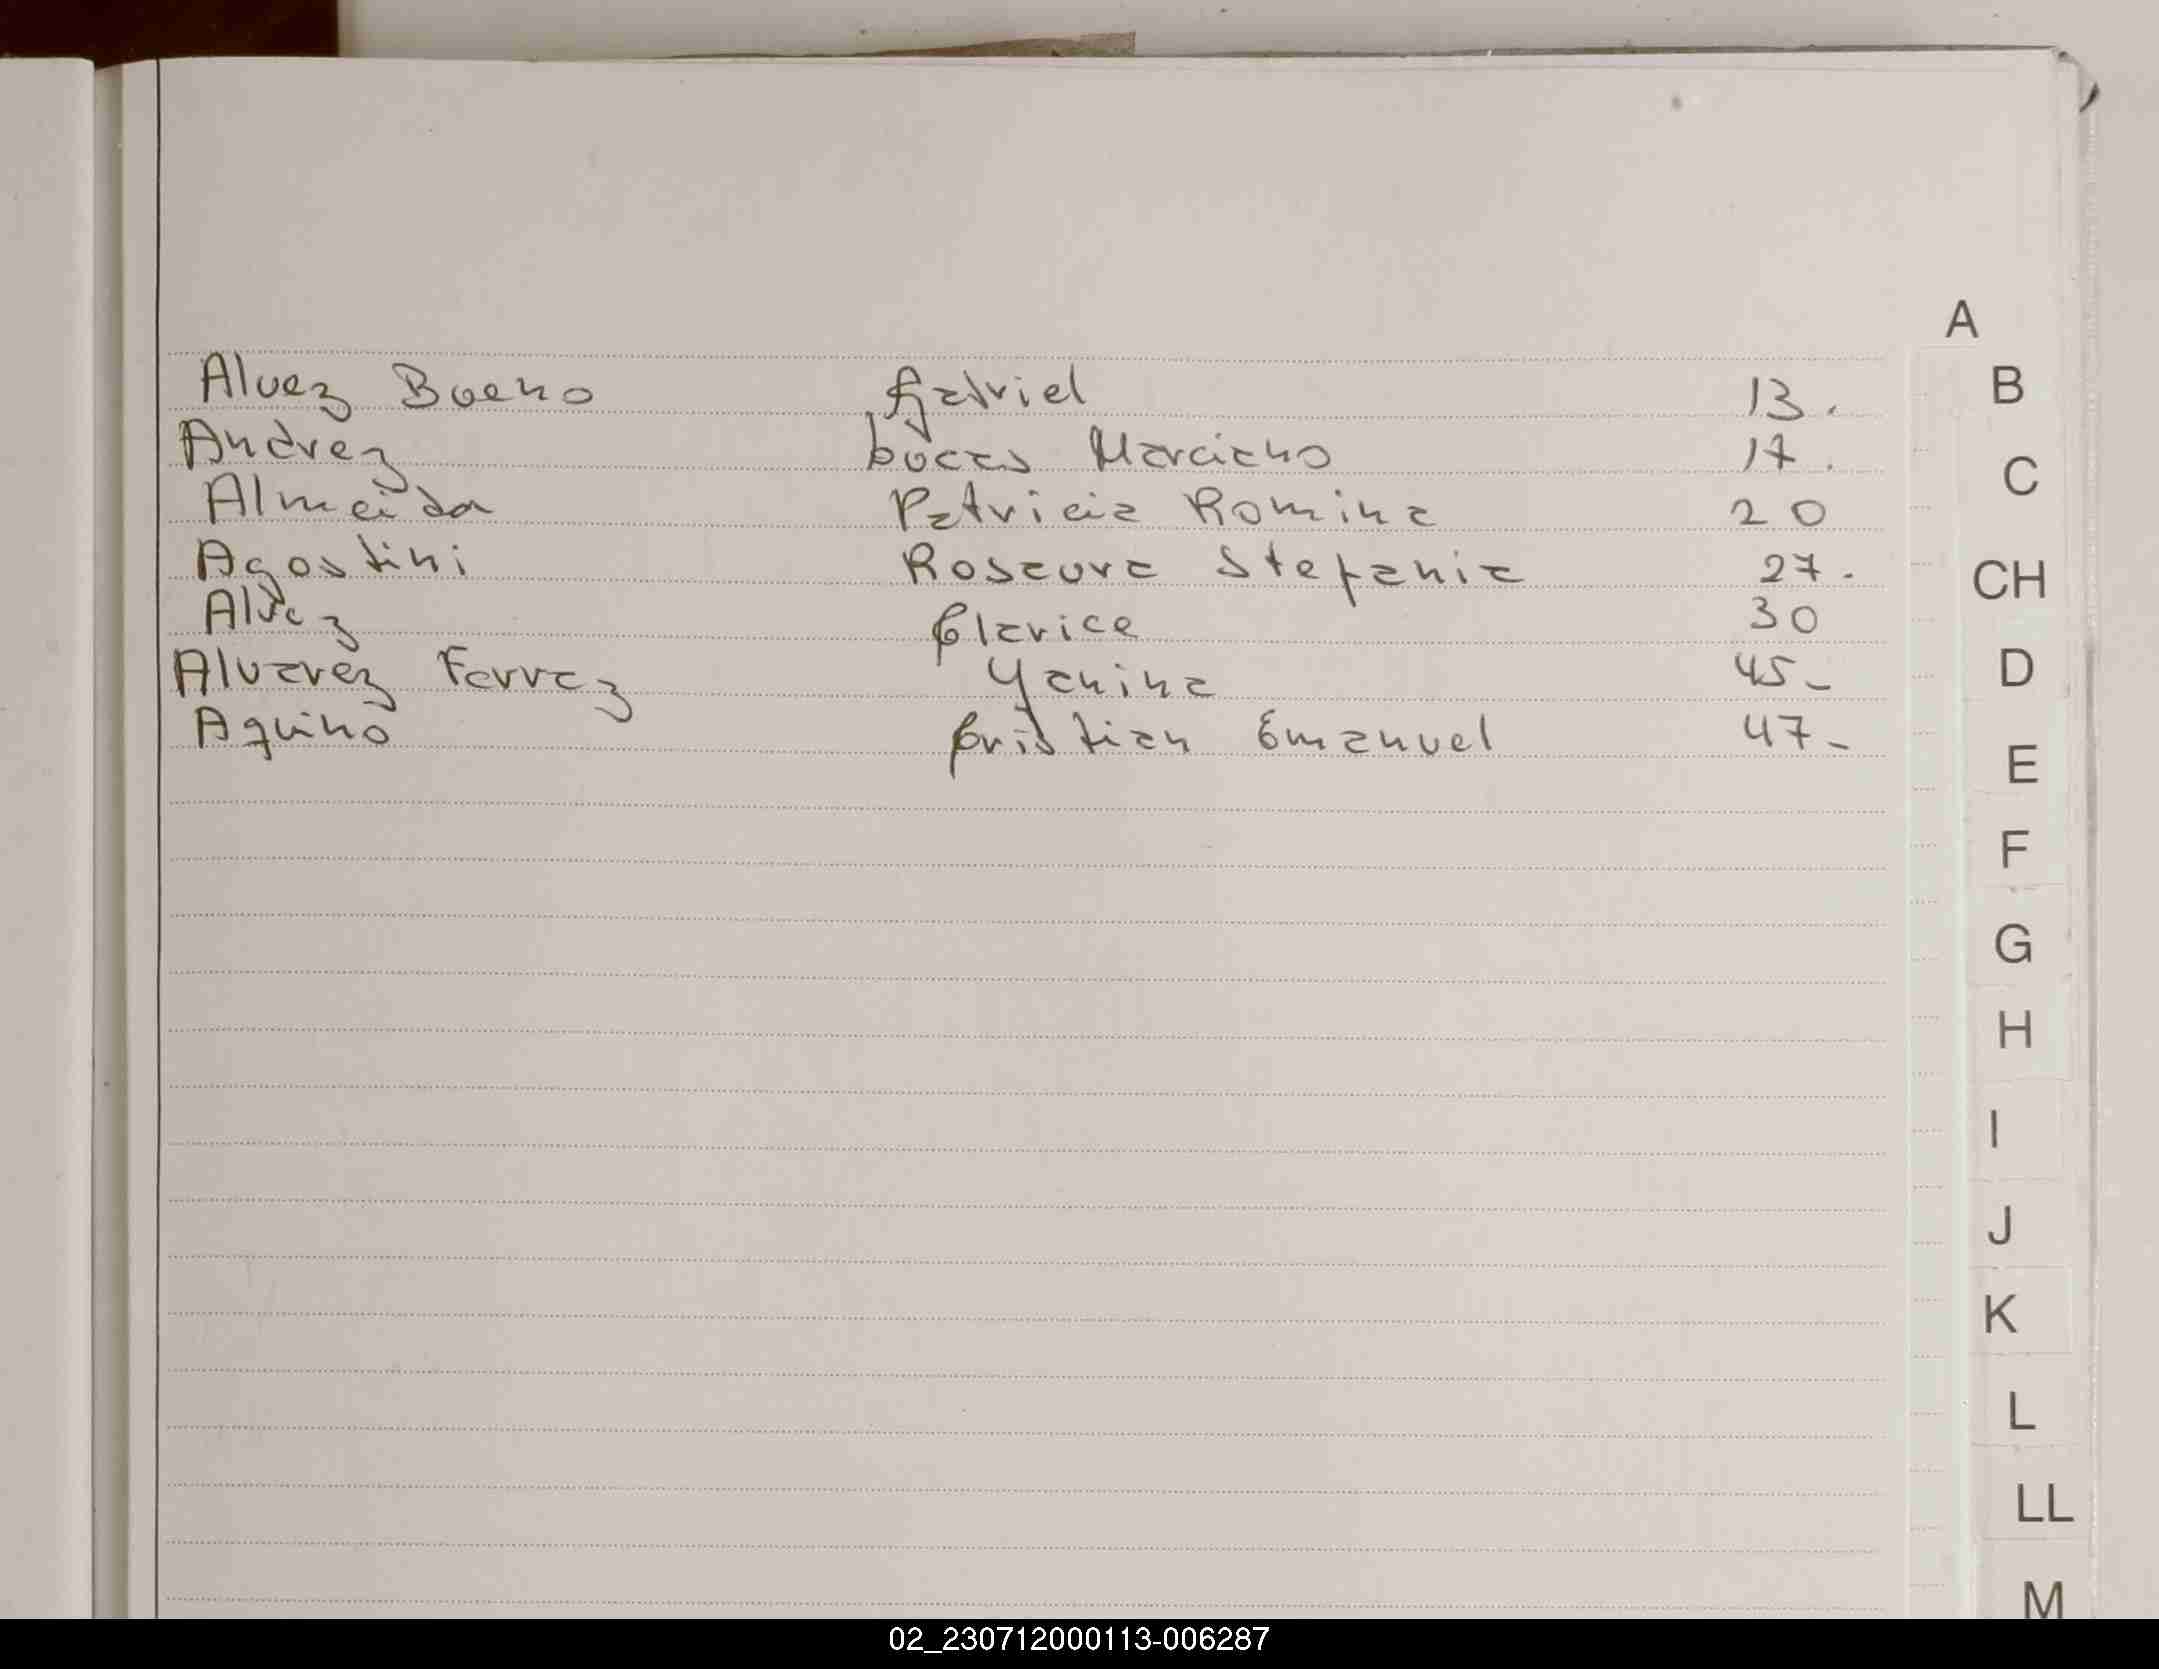 A
Alvez Bueno Gabriel 13.
B
Andrez Lucas Marciano 17.
C
Almeida Patricia Romina 20
Agostini Rosaura Stefania 27.
CH
Alvez Clarice 30
Alvarez Ferraz Yanina 45-
D
Aquino Cristian Emanuel 47-
E
F
G
H
I
J
K
L
LL
M
02_230712000113-006287